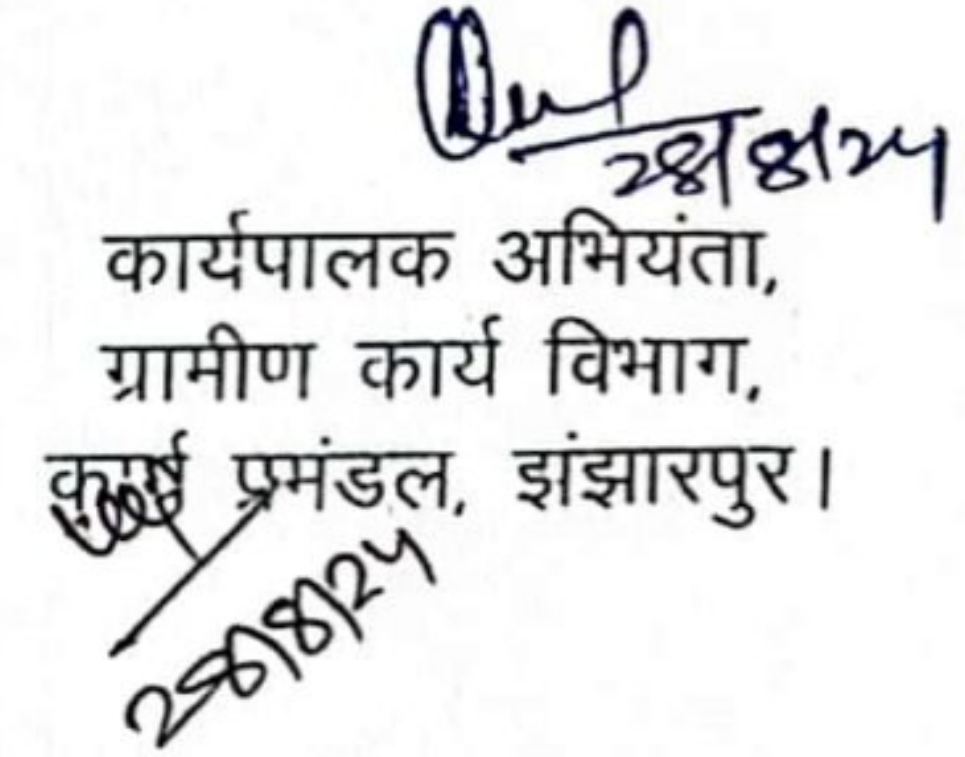 28/8/24
कार्यपालक अभियंता,
ग्रामीण कार्य विभाग,
कार्य प्रमंडल, झंझारपुर।
28/8/24